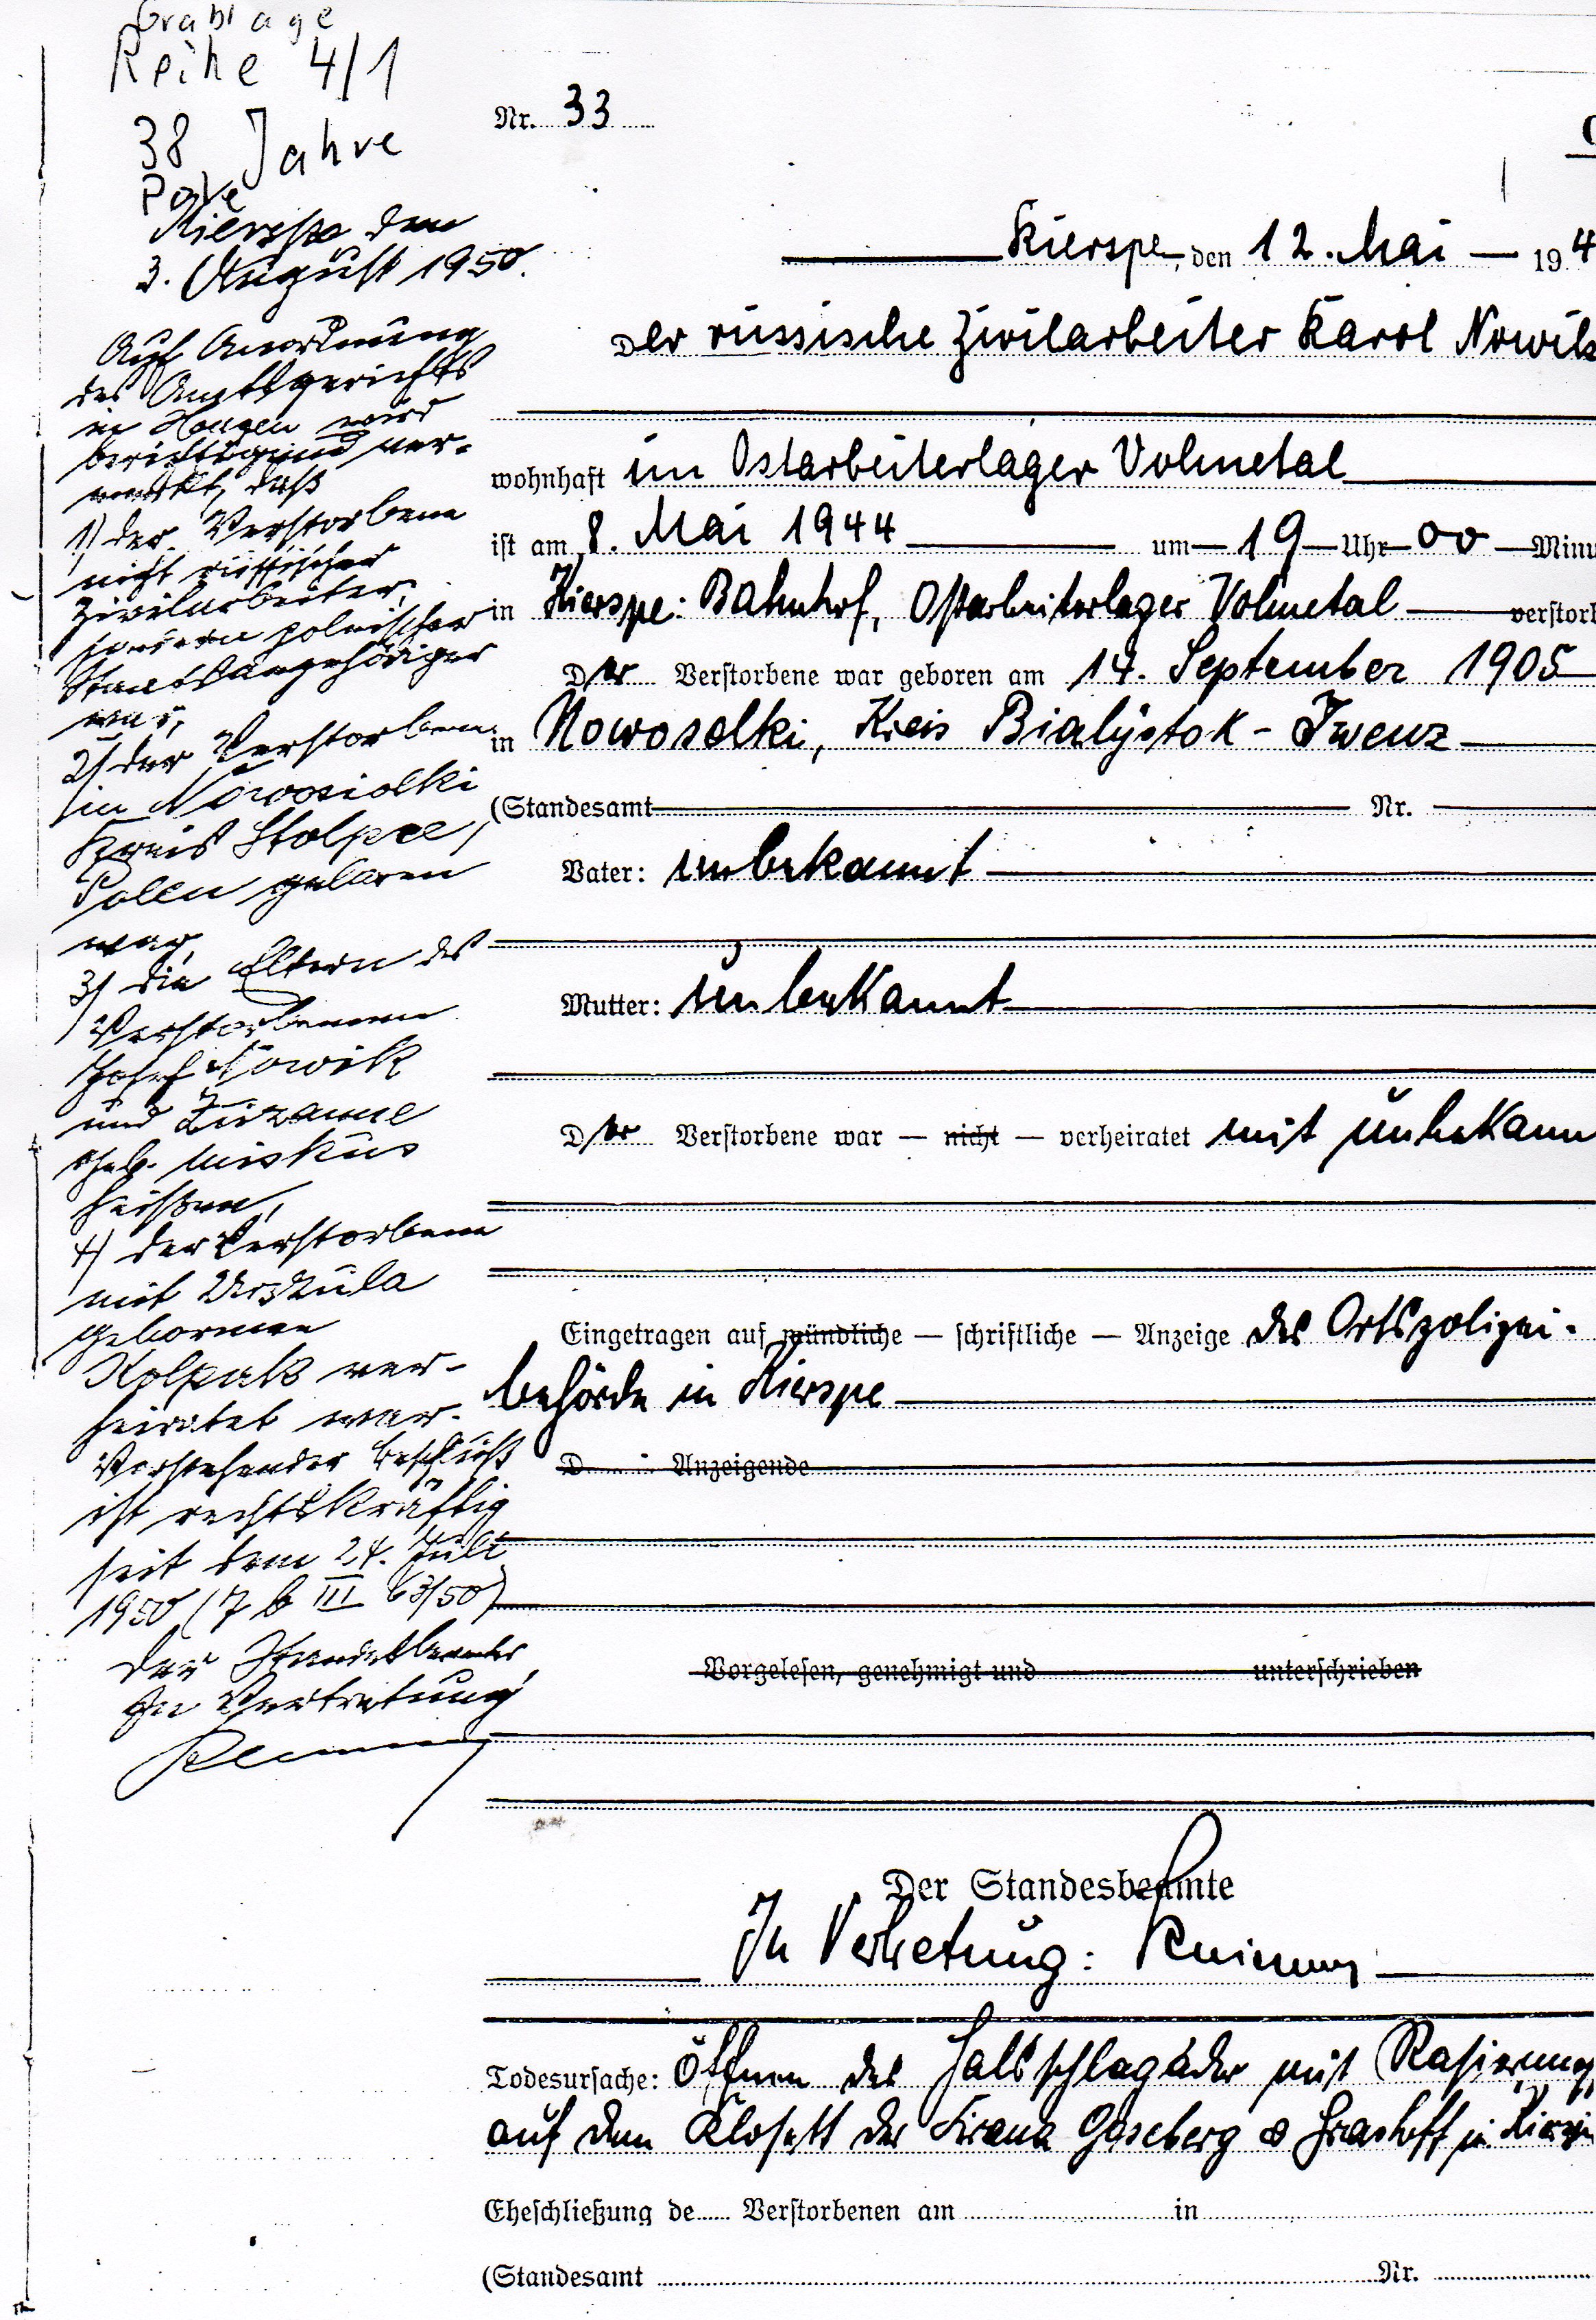 Grablage
Reihe 4/1
38 Jahre
Pole
Kierspe den
3. August 1950.
Auf Anordnung
des Amtsgerichts
in Hagen wird
berichtigend ver-
merkt, daß
1) der Verstorbene
nicht russischer
Zivilarbeiter,
sondern polnischer
Staatsangehöriger
war,
2) der Verstorbene
in Nowosiolki
Kreis Stolpce,
Polen geboren
war,
3) die Eltern des
Verstorbenen
Josef Nowik
und Zuzanne
geb. Miskus
heißen,
4) der Verstorbene
mit Urszula
geborenen
Kolpak ver-
heiratet war.
Vorstehender Beschluß
ist rechtskräftig
seit dem 24. Juli
1950 (7 b III 63/50)
Der Standesbeamte
In Vertretung
Nr. 33
C
Kierspe, den 12. Mai 194
Der russische Zivilarbeiter Karol Nowik
wohnhaft im Ostarbeiterlager Volmetal
ist am 8. Mai 1944 um 19 Uhr 00 Minu
in Kierspe: Bahnhof, Ostarbeiterlager Volmetal verstorb
Der Verstorbene war geboren am 14. September 1905
in Nowoselki, Kreis Bialystok - Iwenz
(Standesamt Nr.
Vater: unbekannt
Mutter: unbekannt
Der Verstorbene war — nicht — verheiratet mit unbekann
Eingetragen auf mündliche — schriftliche — Anzeige der Ortspolizei-
behörde in Kierspe
D Anzeigende
Vorgelesen, genehmigt und unterschrieben
Der Standesbeamte
In Vertretung:
Todesursache: Öffnen der Halsschlagader mit Rasierm
auf dem Klosett der Firma Graseberg &
Eheschließung de Verstorbenen am in
(Standesamt Nr.